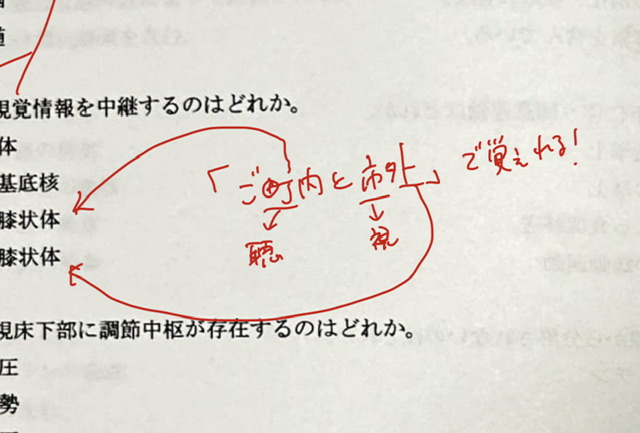 視覚情報を中継するのはどれか。
体
基底核
膝状体
膝状体
「ご町内と市外」で覚えれる!
聴
視
視床下部に調節中枢が存在するのはどれか。
圧
勢